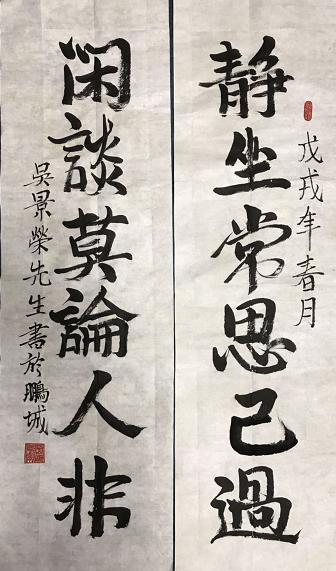 戊戌年春月
静坐常思己過
閑談莫論人非
吳景榮先生書於鵬城